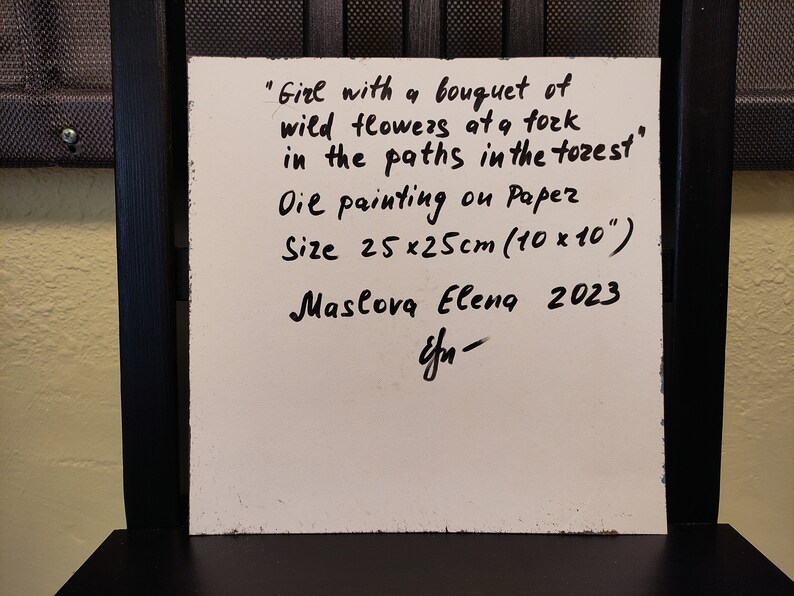 "Girl with a bouquet of
wild flowers at a fork
in the paths in the forest"
Oil painting on Paper
Size 25x25cm (10x10")
Maslova Elena 2023